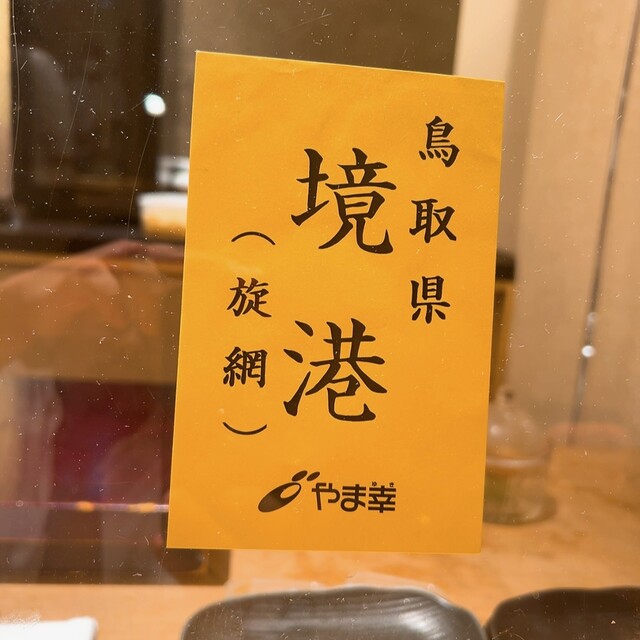 鳥取県
境港
（旋網）
やま幸